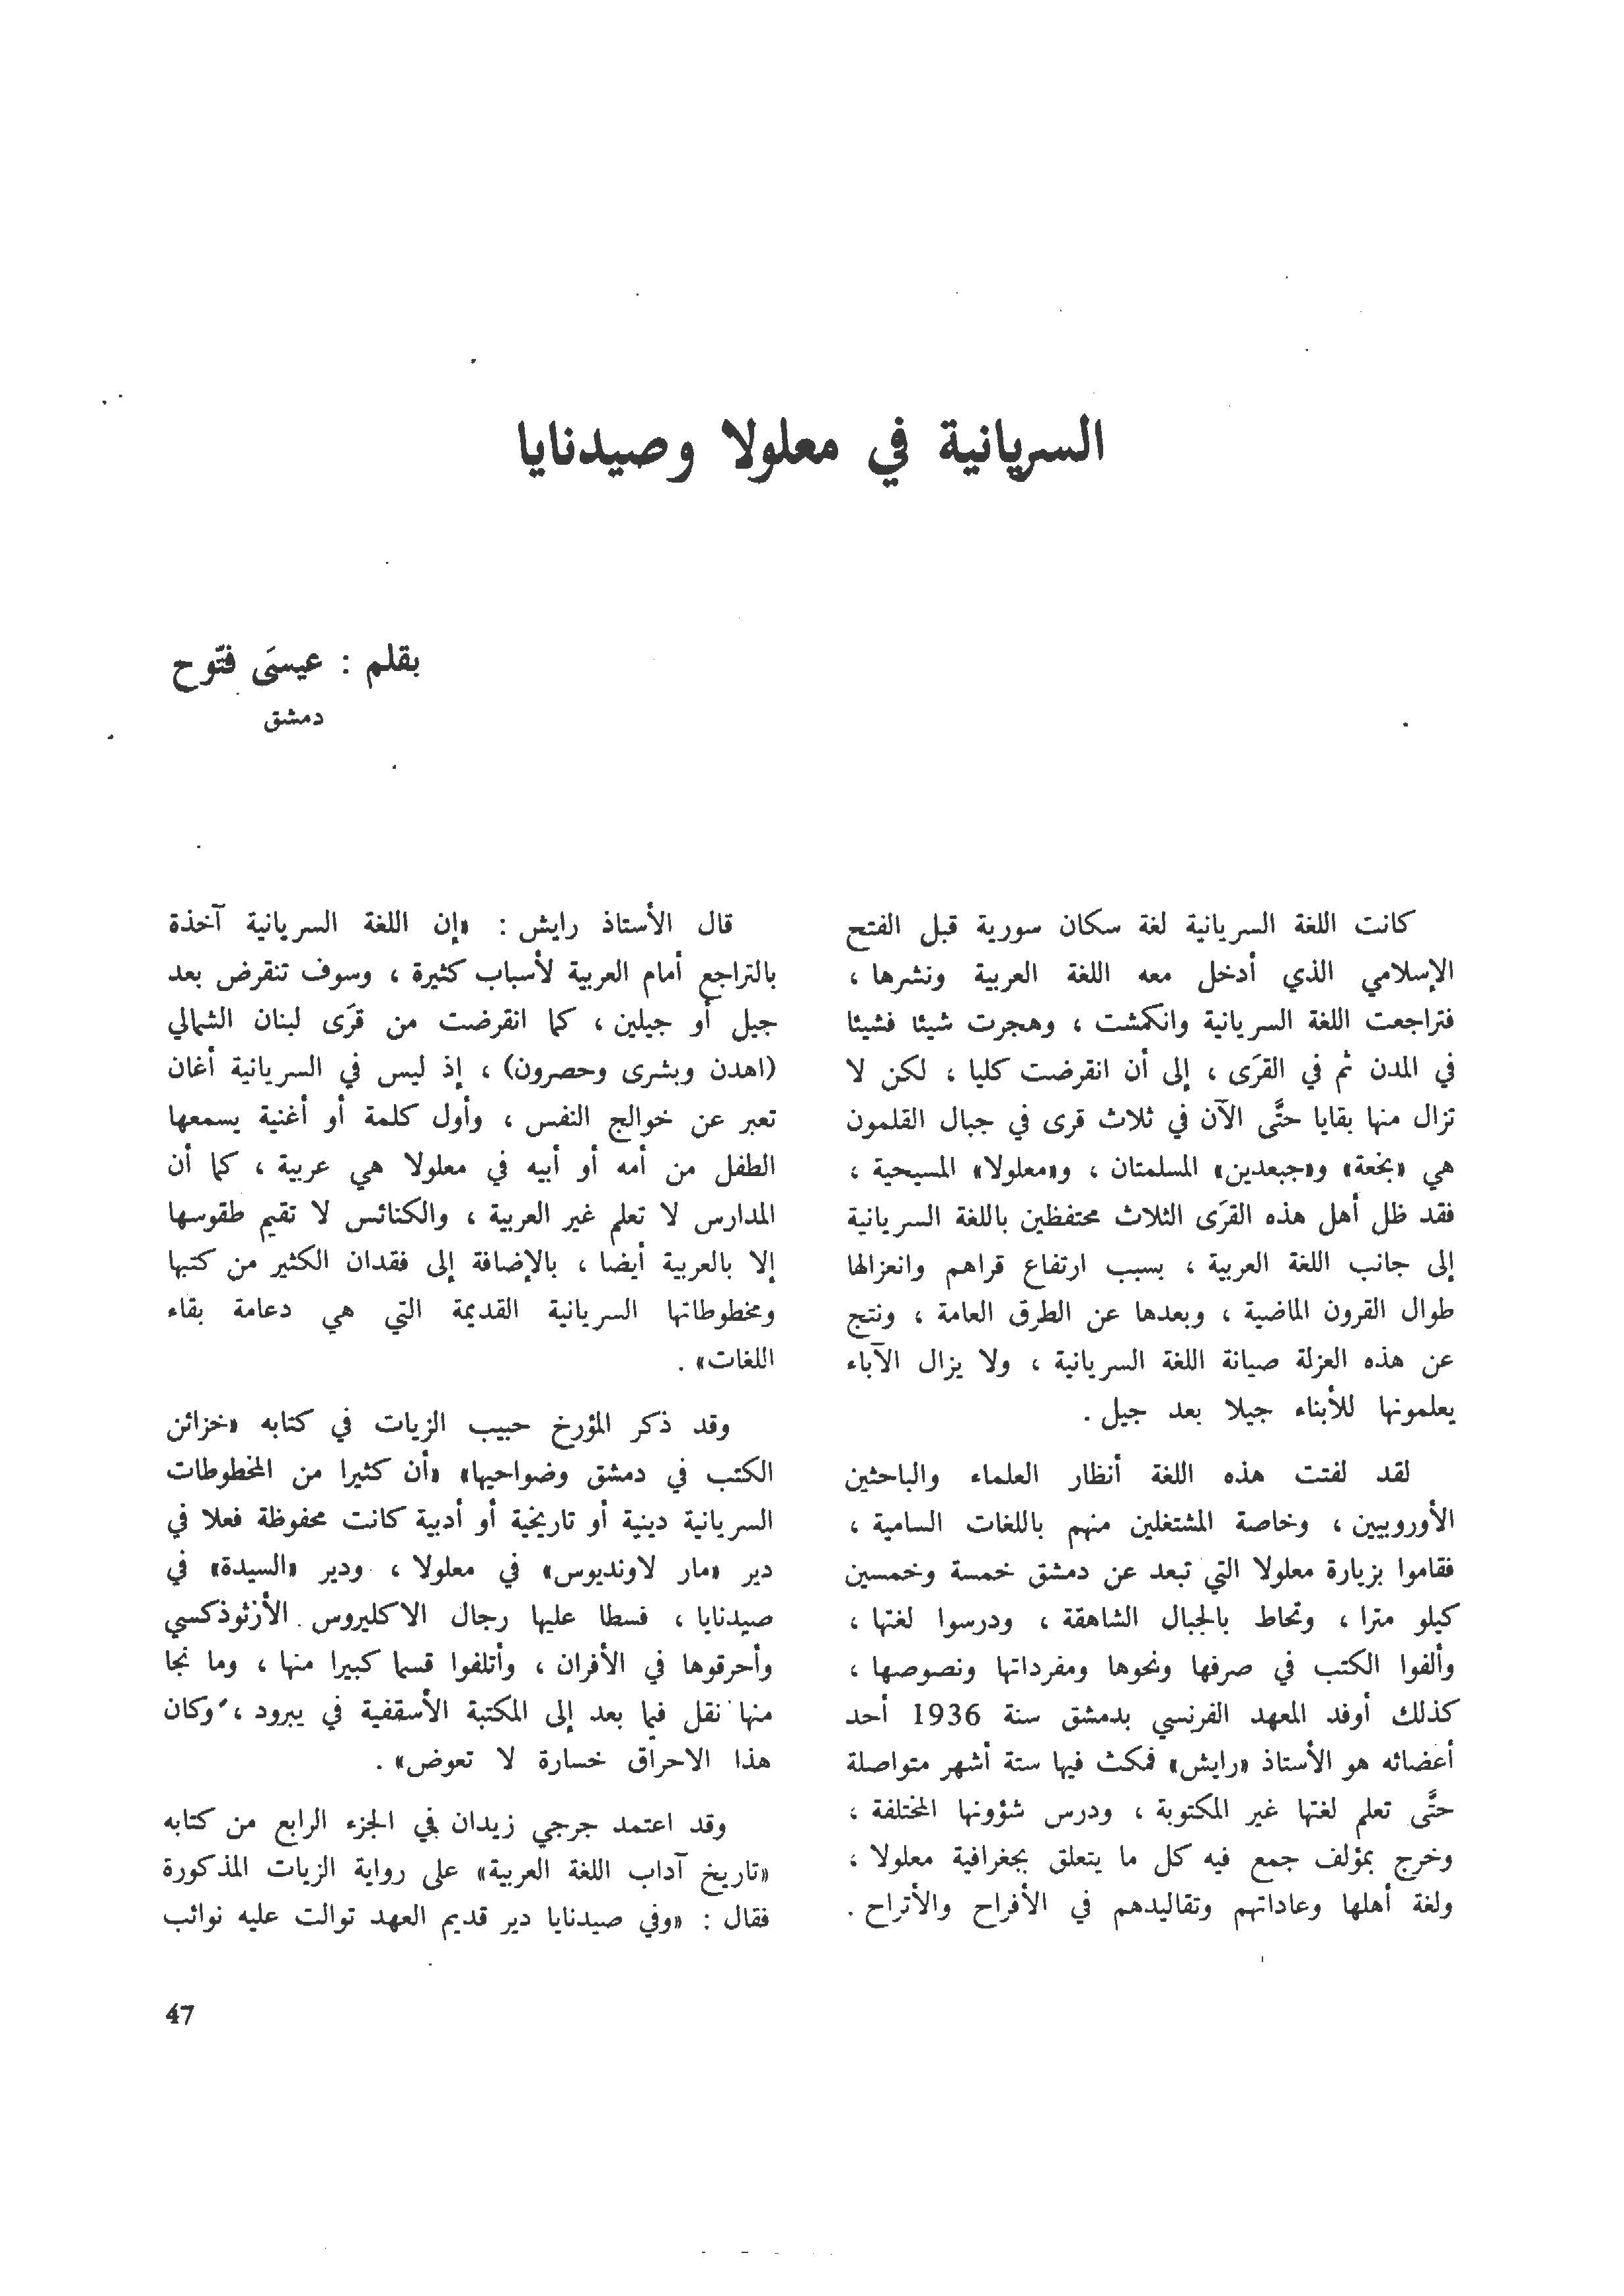 السريانية في معلولا وصيدنايا
بقلم : عيسَى فتّوح
دمشق
كانت اللغة السريانية لغة سكان سورية قبل الفتح
الإسلامي الذي أدخل معه اللغة العربية ونشرها ،
فتراجعت اللغة السريانية وانكمشت ، وهجرت شيئا فشيئا
في المدن ثم في القرَى ، إلى أن انقرضت كليا ، لكن لا
تزال منها بقايا حتَّى الآن في ثلاث قرى في جبال القلمون
هي «بخعة» و«جبعدين» المسلمتان ، و«معلولا» المسيحية ،
فقد ظل أهل هذه القرَى الثلاث محتفظين باللغة السريانية
إلى جانب اللغة العربية ، بسبب ارتفاع قراهم وانعزالها
طوال القرون الماضية ، وبعدها عن الطرق العامة ، ونتج
عن هذه العزلة صيانة اللغة السريانية ، ولا يزال الآباء
يعلمونها للأبناء جيلا بعد جيل .
لقد لفتت هذه اللغة أنظار العلماء والباحثين
الأوروبيين ، وخاصة المشتغلين منهم باللغات السامية ،
فقاموا بزيارة معلولا التي تبعد عن دمشق خمسة وخمسين
كيلو مترا ، وتحاط بالجبال الشاهقة ، ودرسوا لغتها ،
وألفوا الكتب في صرفها ونحوها ومفرداتها ونصوصها ،
كذلك أوفد المعهد الفرنسي بدمشق سنة 1936 أحد
أعضائه هو الأستاذ «رايش» فمكث فيها ستة أشهر متواصلة
حتَّى تعلم لغتها غير المكتوبة ، ودرس شؤونها المختلفة ،
وخرج بمؤلف جمع فيه كل ما يتعلق بجغرافية معلولا ،
ولغة أهلها وعاداتهم وتقاليدهم في الأفراح والأتراح .
قال الأستاذ رايش : «إن اللغة السريانية آخذة
بالتراجع أمام العربية لأسباب كثيرة ، وسوف تنقرض بعد
جيل أو جيلين ، كما انقرضت من قرَى لبنان الشمالي
(اهدن وبشرى وحصرون) ، إذ ليس في السريانية أغان
تعبر عن خوالج النفس ، وأول كلمة أو أغنية يسمعها
الطفل من أمه أو أبيه في معلولا هي عربية ، كما أن
المدارس لا تعلم غير العربية ، والكنائس لا تقيم طقوسها
إلا بالعربية أيضا ، بالإضافة إلى فقدان الكثير من كتبها
ومخطوطاتها السريانية القديمة التي هي دعامة بقاء
اللغات» .
وقد ذكر المؤرخ حبيب الزيات في كتابه «خزائن
الكتب في دمشق وضواحيها» «أن كثيرا من المخطوطات
السريانية دينية أو تاريخية أو أدبية كانت محفوظة فعلا في
دير «مار لاونديوس» في معلولا ، ودير «السيدة» في
صيدنايا ، فسطا عليها رجال الاكليروس الأرثوذكسي
وأحرقوها في الأفران ، وأتلفوا قسما كبيرا منها ، وما نجا
منها نقل فيما بعد إلى المكتبة الأسقفية في يبرود ، وكان
هذا الاحراق خسارة لا تعوض» .
وقد اعتمد جرجي زيدان في الجزء الرابع من كتابه
«تاريخ آداب اللغة العربية» على رواية الزيات المذكورة
فقال : «وفي صيدنايا دير قديم العهد توالت عليه نوائب
47